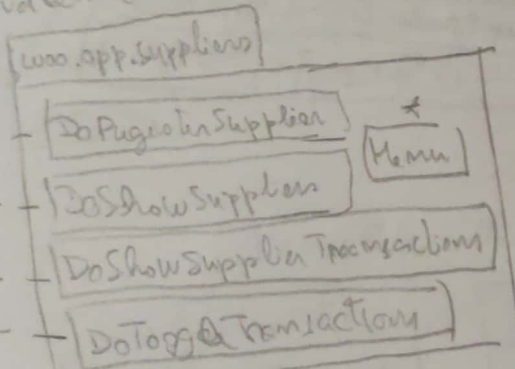 woo.app.suppliers
DoRegisterSupplier
*
Menu
DoShowSuppliers
DoShowSupplierTransactions
DoToggleTransactions